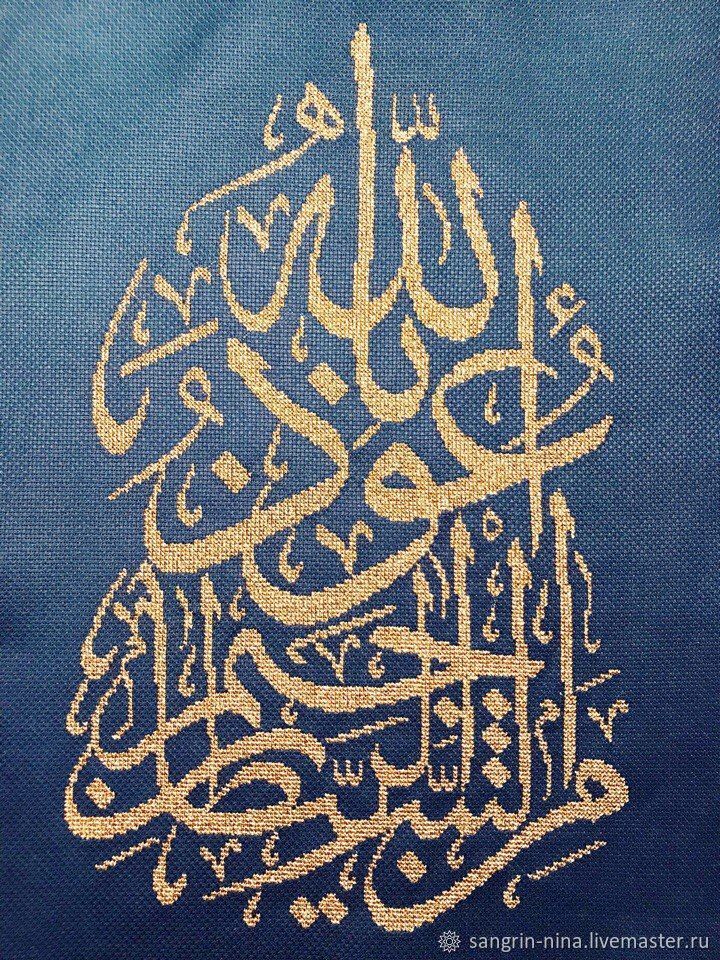 أعوذ بالله من الشيطان الرجيم
sangrin-nina.livemaster.ru